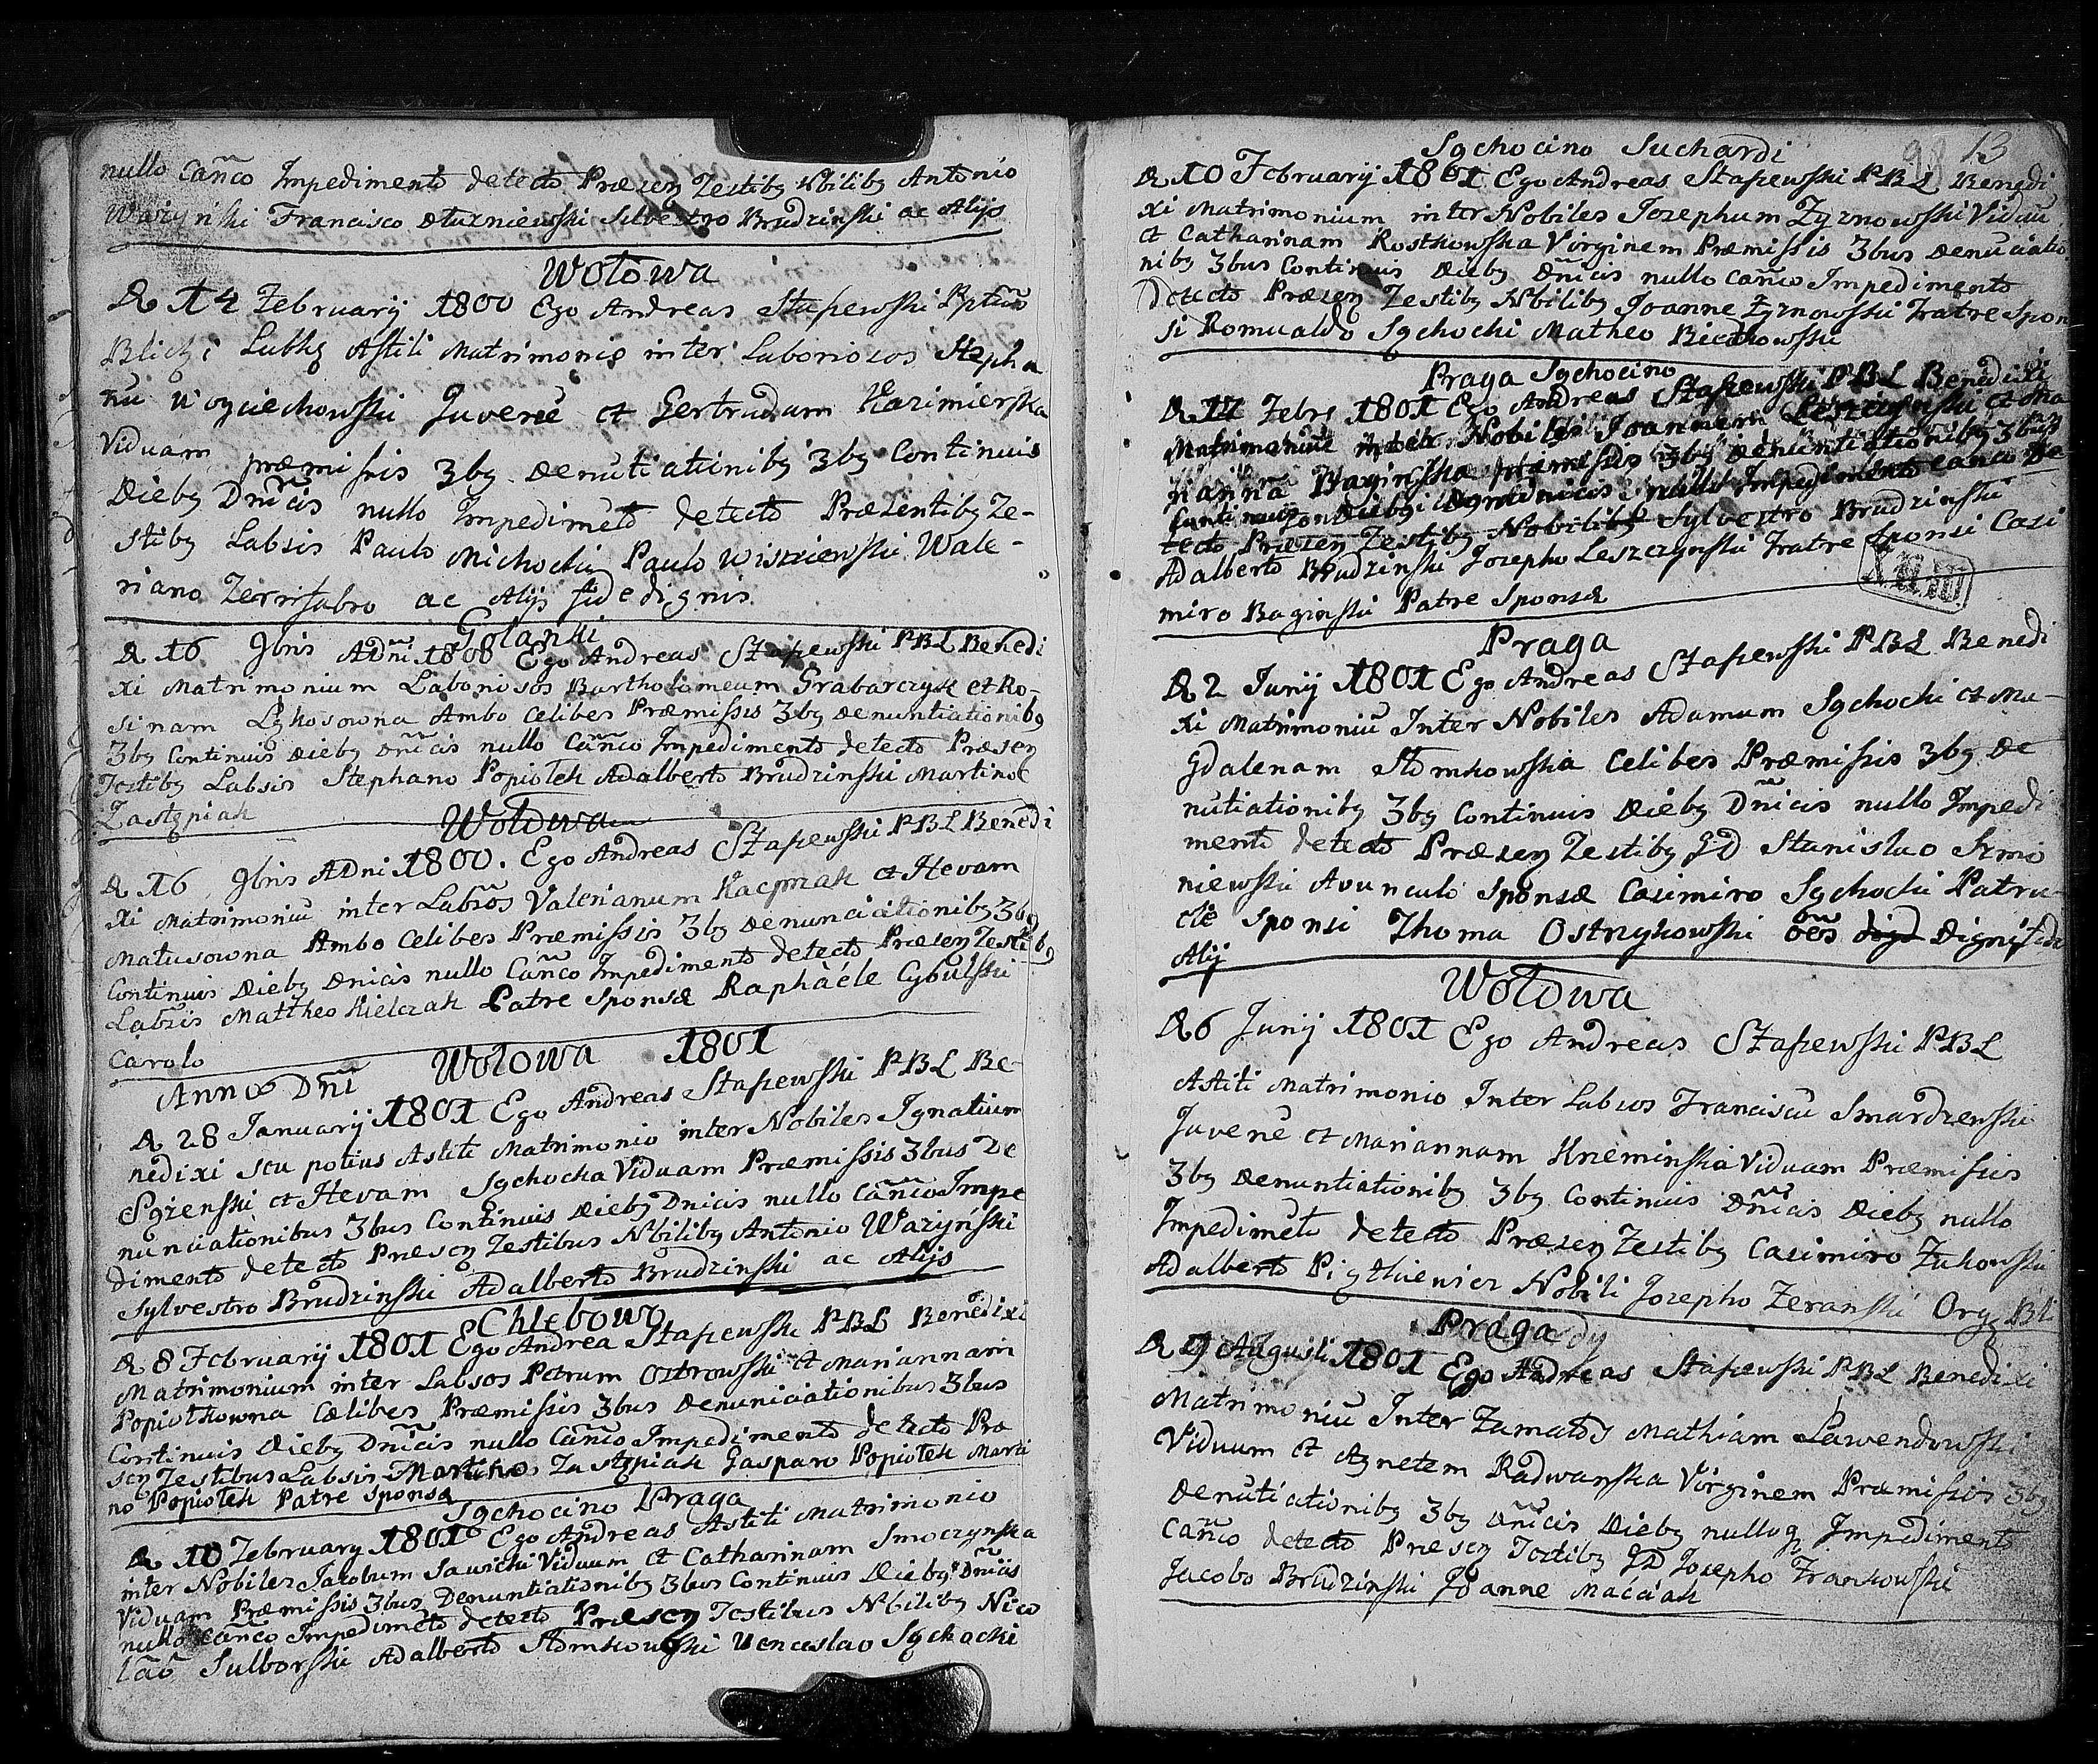 nullo Cañco Impedimento detecto Præsen Testibg Nbilibg Antonio
Ważyński Francisco Dłużniewski Silvestro Brudzinski ac Alijs
Wołowa
D 14 February 1800 Ego Andreas Stapewski
Matrimonio inter Laboriosos Stepha
nu Woyciechowski Juvene et Gertrudam Kazimierska
Viduam præmissis 3bg Denutiationibg 3bg Continuis
Diebg Dnicis nullo Impedimeto detecto Præsentibg Te-
stibg Labsis Paulo Michocki Paulo Wiszniewski Wale-
riano ac Alijs fide dignis
Golanki
D 16 9bris ADni 1800 Ego Andreas Stapewski PBL Benedi
xi Matrimonium Laboriosos Bartholomeum Grabarczyk et Ro-
sinam Lykosowna Ambo Celibes Præmissis 3bg Denuntiationibg
3bg Continuis Diebg Dnicis nullo Cañco Impedimento detecto Præsen
Testibg Labsis Stephano Popiołek Adalberto Brudzinski Martino
Zastępiak
Wołowa
D 16 9bris ADni 1800. Ego Andreas Stapewski PBL Benedi
xi Matrimoniu inter Labsos Valerianum Kacprzak et Hevam
Matusowna Ambo Celibes Præmissis 3bg Denunciationibg 3bg
Continuis Diebg Dnicis nullo Cañco Impedimento detecto Præsen Testibg
Labsis Mattheo Kielczak Patre Sponsæ Raphaele Cybulski
Carolo
Anno Dñi Wołowa 1801
D 28 January 1801 Ego Andreas Stapewski PBL Be-
nedixi seu potius Astiti Matrimonio inter Nobiles Ignatium
Sgżenski et Hevam Sgchocka Viduam Præmissis 3bus De
nunciationibus 3bus Continuis Diebg Dnicis nullo Cañco Impe
dimento detecto Præsen Testibus Nbilibg Antonio Ważyński
Sylvestro Brudzinski Adalberto Brudzinski ac Alijs
Chlebowo
D 8 February 1801 Ego Andrea Stapewski PBL Benedixi
Matrimonium inter Labsos Petrum Ostrowski et Mariannam
Popiołkowna Cælibes Præmissis 3bus Denunciationibus 3bus
Continuis Diebg Dñicis nullo Cañco Impedimento detecto Præ
sen Testibus Labsis Martino Zastępiak Gasparo Popiołek Marti
no Popiołek Patre Sponsæ
Sgchocino Praga
D 10 February 1801 Ego Andreas Astiti Matrimonio
inter Nobiles Jacobum Sawicki Viduum et Catharinam Smoczynska
Viduam Præmissis 3bus Denuntiationibg 3bus Continuis Diebg Dnicis
nullo Cañco Impedimeto detecto Præsen Testibus Nbilibg Nico
lao Sulborski Adalberto Słomkowski Venceslao Sgchocki
13
Sgchocino Suchardi
D 10 February 1801 Ego Andreas Stapewski PBL Benedi
xi Matrimonium inter Nobiles Josephum Zyznowski Viduu
et Catharinam Rostkowska Virginem Præmissis 3bus Denuciatio
nibg 3bus Continuis Diebg Dñicis nullo Cañco Impedimento
Detecto Præsen Testibg Nbilibg Joanne Zyznowski Fratre Spon
si Romualdo Sgchocki Matheo
Praga Sgchocino
D 17 Febrs 1801 Ego Andreas Stapewski PBL Benedixi
Matrimoniu inter Nobiles Joannem Leszczynski et Ma
rianna Baginska præmissis 3bg Denuntiationibg 3bus
Continuis Diebg Dominicis nullo Impedimento canco De
tecto Præsen Testibg Nobilibg Sylvestro Brudzinski
Adalberto Brudzinski Josepho Leszczynski Fratre Sponsi Casi
miro Baginski Patre Sponsæ
Praga
D 2 Junij 1801 Ego Andreas Stapewski PBL Benedi
xi Matrimoniu Inter Nobiles Adamum Sgchocki et Ma-
gdalenam Słomkowska Celibes Præmissis 3bg De
nutiationibg 3bg Continuis Diebg Dñicis nullo Impedi
mento detecto Præsen Testibg GD Stanislao Srmio
niewski Avunculo Sponsæ Casimiro Sgchocki Patru-
ele Sponsi Thoma Ostrzykowski digni fide
Alij
Wołowa
D 6 Junij 1801 Ego Andreas Stapewski PBL
Astiti Matrimonio Inter Labsos Franciscu Smardzewski
Juvene et Mariannam Kneminska Viduam Præmissis
3bg Denuntiationibg 3bg Continuis Dñicis Diebg nullo
Impedimeto detecto Præsen Testibg Casimiro Żukowski
Adalberto Nobili Josepho Zeranski Org
Praga
D 9 Augusti 1801 Ego Andreas Stapewski PBL Benedixi
Matrimoniu Inter Famatos Mathiam Lawendowski
Viduum et Agnetem Radwanska Virginem Præmissis 3bg
Denutiationibg 3bg Dñicis Diebg nulloq Impedimento
Cañco detecto Præsen Testibg GD Josepho Frankowski
Jacobo Brudzinski Joanne Maciak